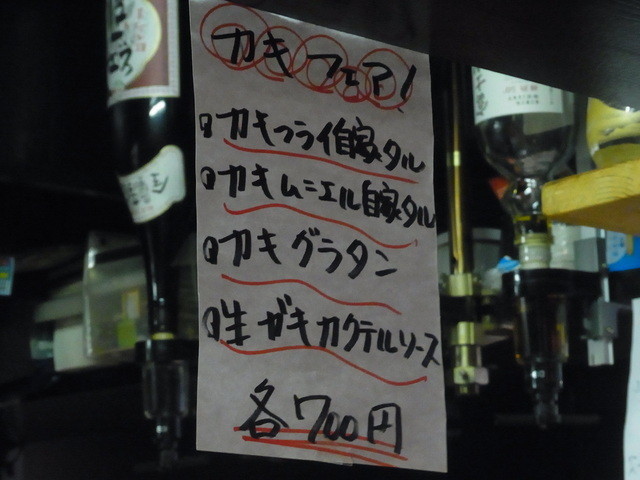 カキフェア!
カキフライ自家タル
カキムニエル自家タル
カキグラタン
生ガキカクテルソース
各700円